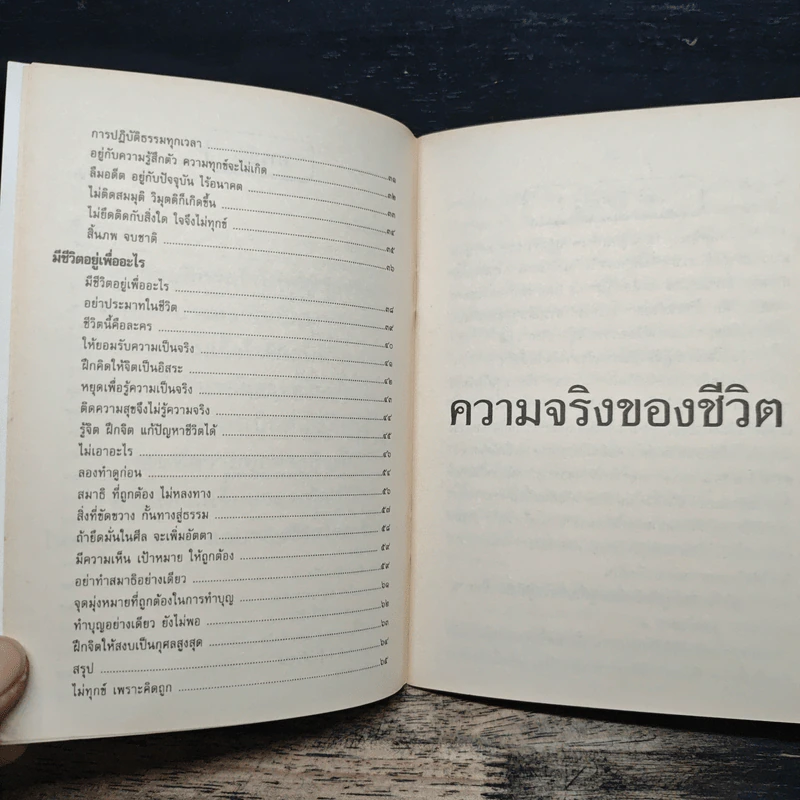 การปฏิบัติธรรมทุกเวลา ๓๑
อยู่กับความรู้สึกตัว ความทุกข์จะไม่เกิด ๓๒
ลืมอดีต อยู่กับปัจจุบัน ไร้อนาคต ๓๓
ไม่ติดสมมุติ วิมุตติก็เกิดขึ้น ๓๔
ไม่ยึดติดกับสิ่งใด ใจจึงไม่ทุกข์ ๓๕
สิ้นภพ จบชาติ ๓๖
มีชีวิตอยู่เพื่ออะไร
มีชีวิตอยู่เพื่ออะไร ๓๘
อย่าประมาทในชีวิต ๓๙
ชีวิตนี้คือละคร ๔๐
ให้ยอมรับความเป็นจริง ๔๑
ฝึกคิดให้จิตเป็นอิสระ ๔๒
หยุดเพื่อรู้ความเป็นจริง ๔๓
ติดความสุขจึงไม่รู้ความจริง ๔๔
รู้จิต ฝึกจิต แก้ปัญหาชีวิตได้
ไม่เอาอะไร
ลองทำดูก่อน
สมาธิ ที่ถูกต้อง ไม่หลงทาง ๕๖
สิ่งที่ขัดขวาง กั้นทางสู่ธรรม
ถ้ายึดมั่นในศีล จะเพิ่มอัตตา ๕๘
มีความเห็น เป้าหมาย ให้ถูกต้อง ๕๙
อย่าทำสมาธิอย่างเดียว ๕๙
จุดมุ่งหมายที่ถูกต้องในการทำบุญ ๖๑
ทำบุญอย่างเดียว ยังไม่พอ ๖๒
ฝึกจิตให้สงบเป็นกุศลสูงสุด ๖๓
สรุป ๖๔
ไม่ทุกข์ เพราะคิดถูก ๖๕
ความจริงของชีวิต